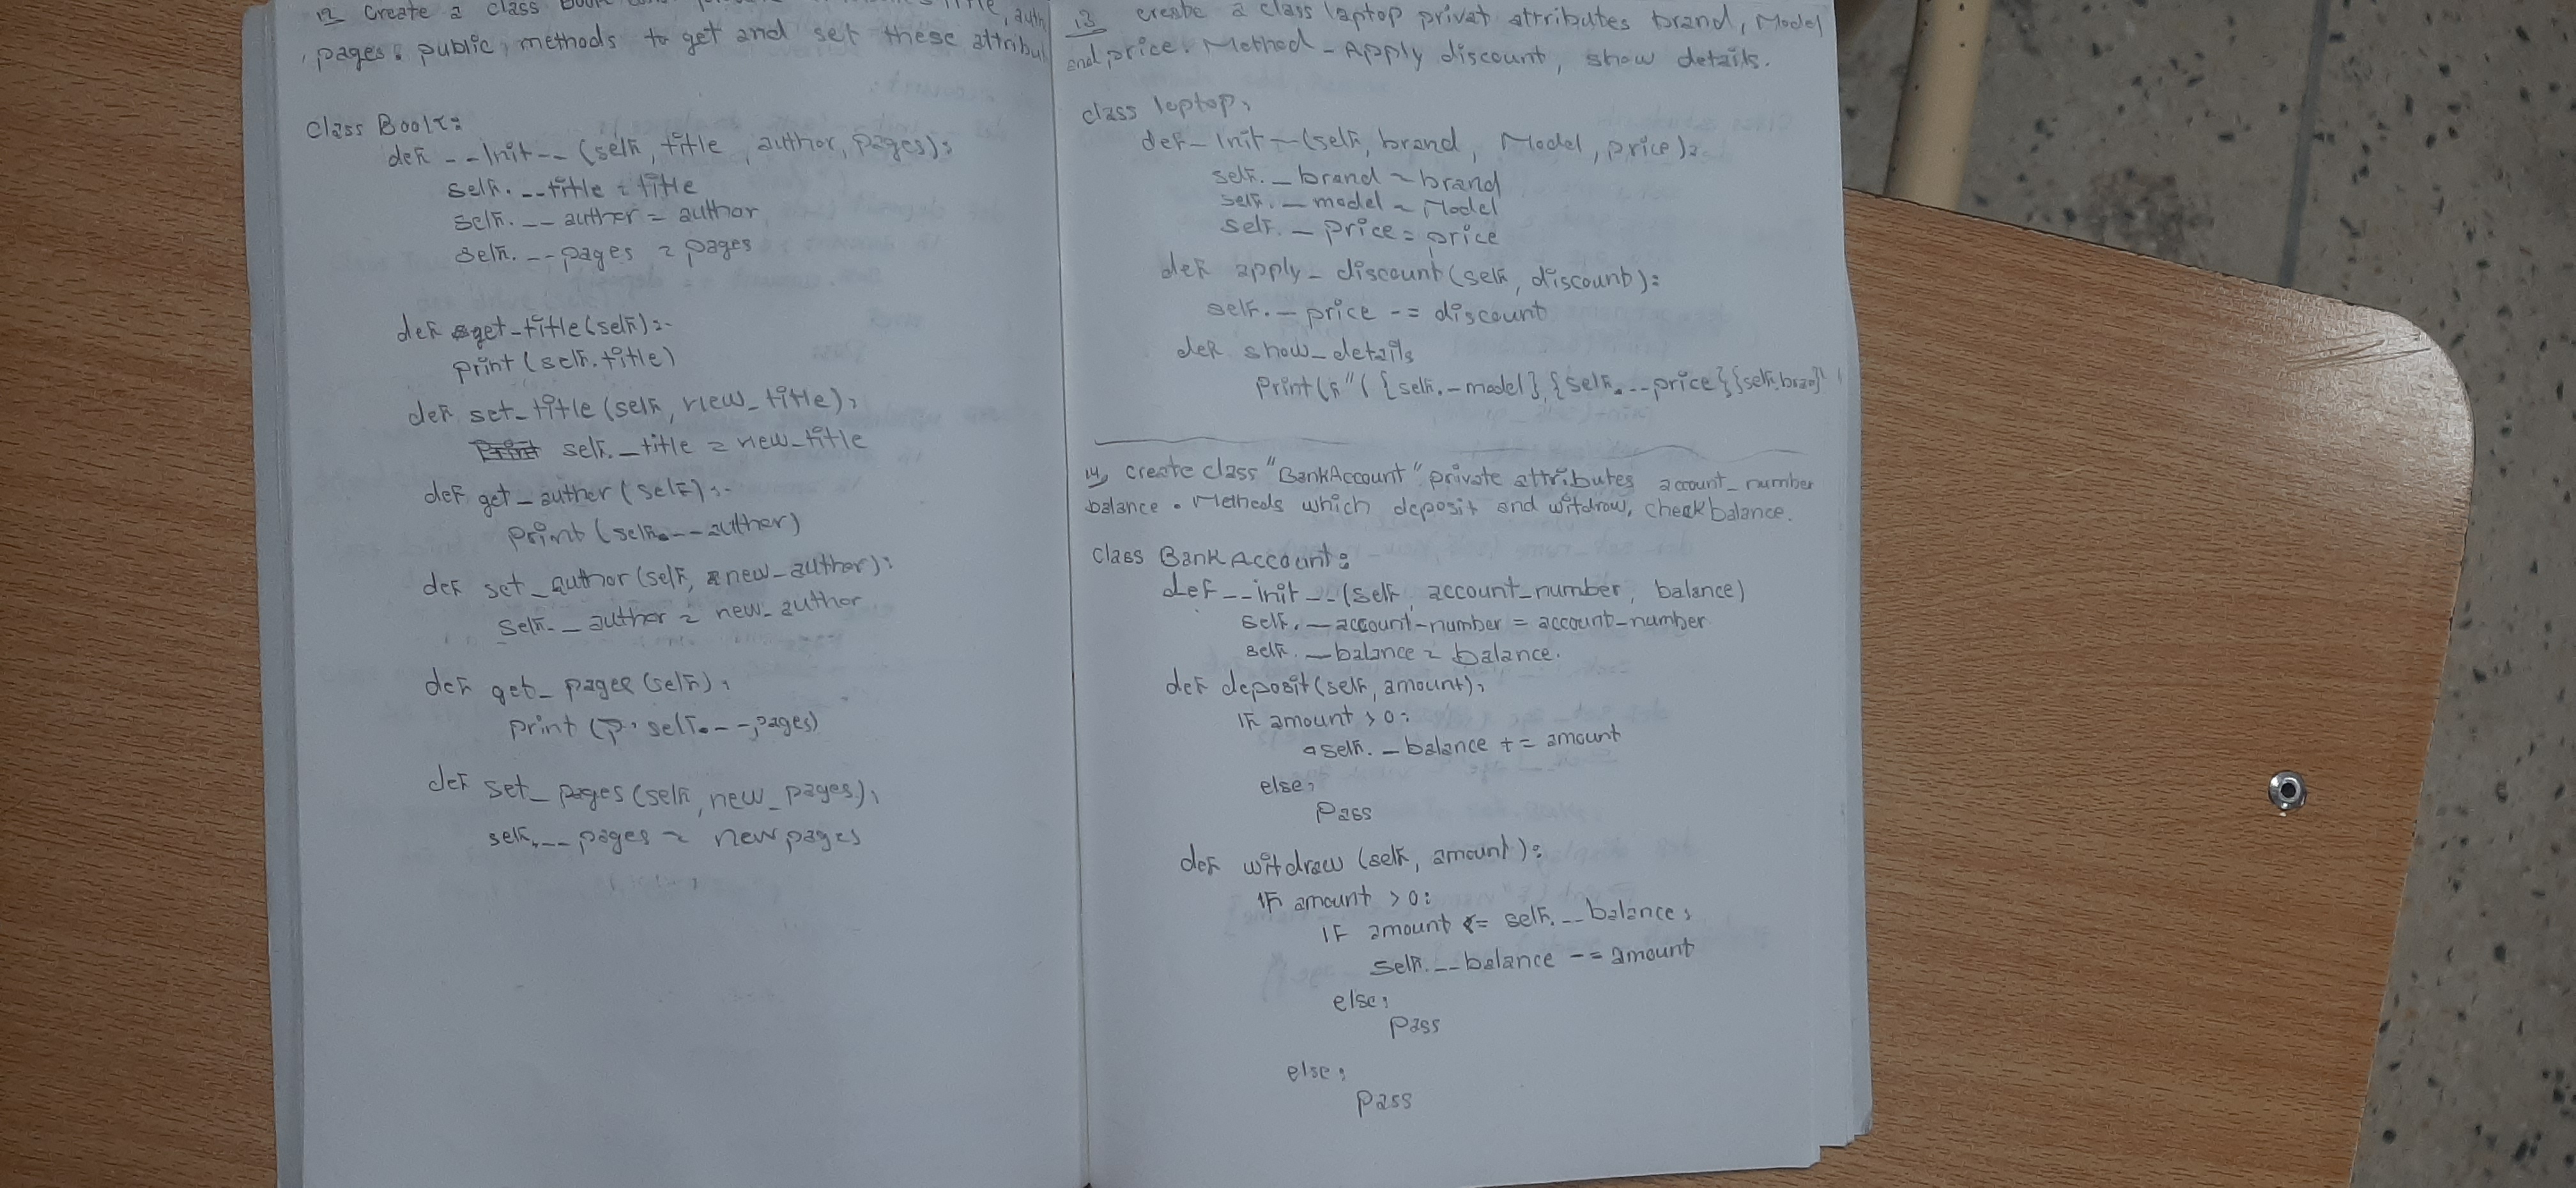 12 create a class Book
, pages. public, methods to get and set these attribut
class Book:
def --init-- (self, title, author, pages):
self.--title = title
self.--author = author
self.--pages = pages
def get-title(self):
print(self.title)
def set-title (self, new_title):
self.__title = new_title
def get_author(self):
print(self.--author)
def set_author(self, new-author):
self.__author = new-author
def get_pages (self):
print (self.--pages)
def set_pages(self, new_pages):
self.--pages = new pages
13 create a class laptop privat attributes brand, model
and price. Method - Apply discount, show details.
class laptop:
def --init-- (self, brand, Model, price):
self.__brand = brand
self.__model = Model
self.__price = price
def apply-discount (self, discount):
self.__price -= discount
def show_details
print(f"{self.-model},{self.--price}{self.brand}"
14, create class "BankAccount" private attributes account_number
balance. Methods which deposit and witdrow, cheakbalance.
class BankAccount:
def --init--(self, account_number, balance)
self.--account-number = account-number
self.__balance = balance.
def deposit(self, amount):
if amount > 0:
self.__balance += amount
else:
pass
def witdraw (self, amount):
if amount > 0:
if amount <= self.__balance:
self.__balance -= amount
else:
pass
else:
pass